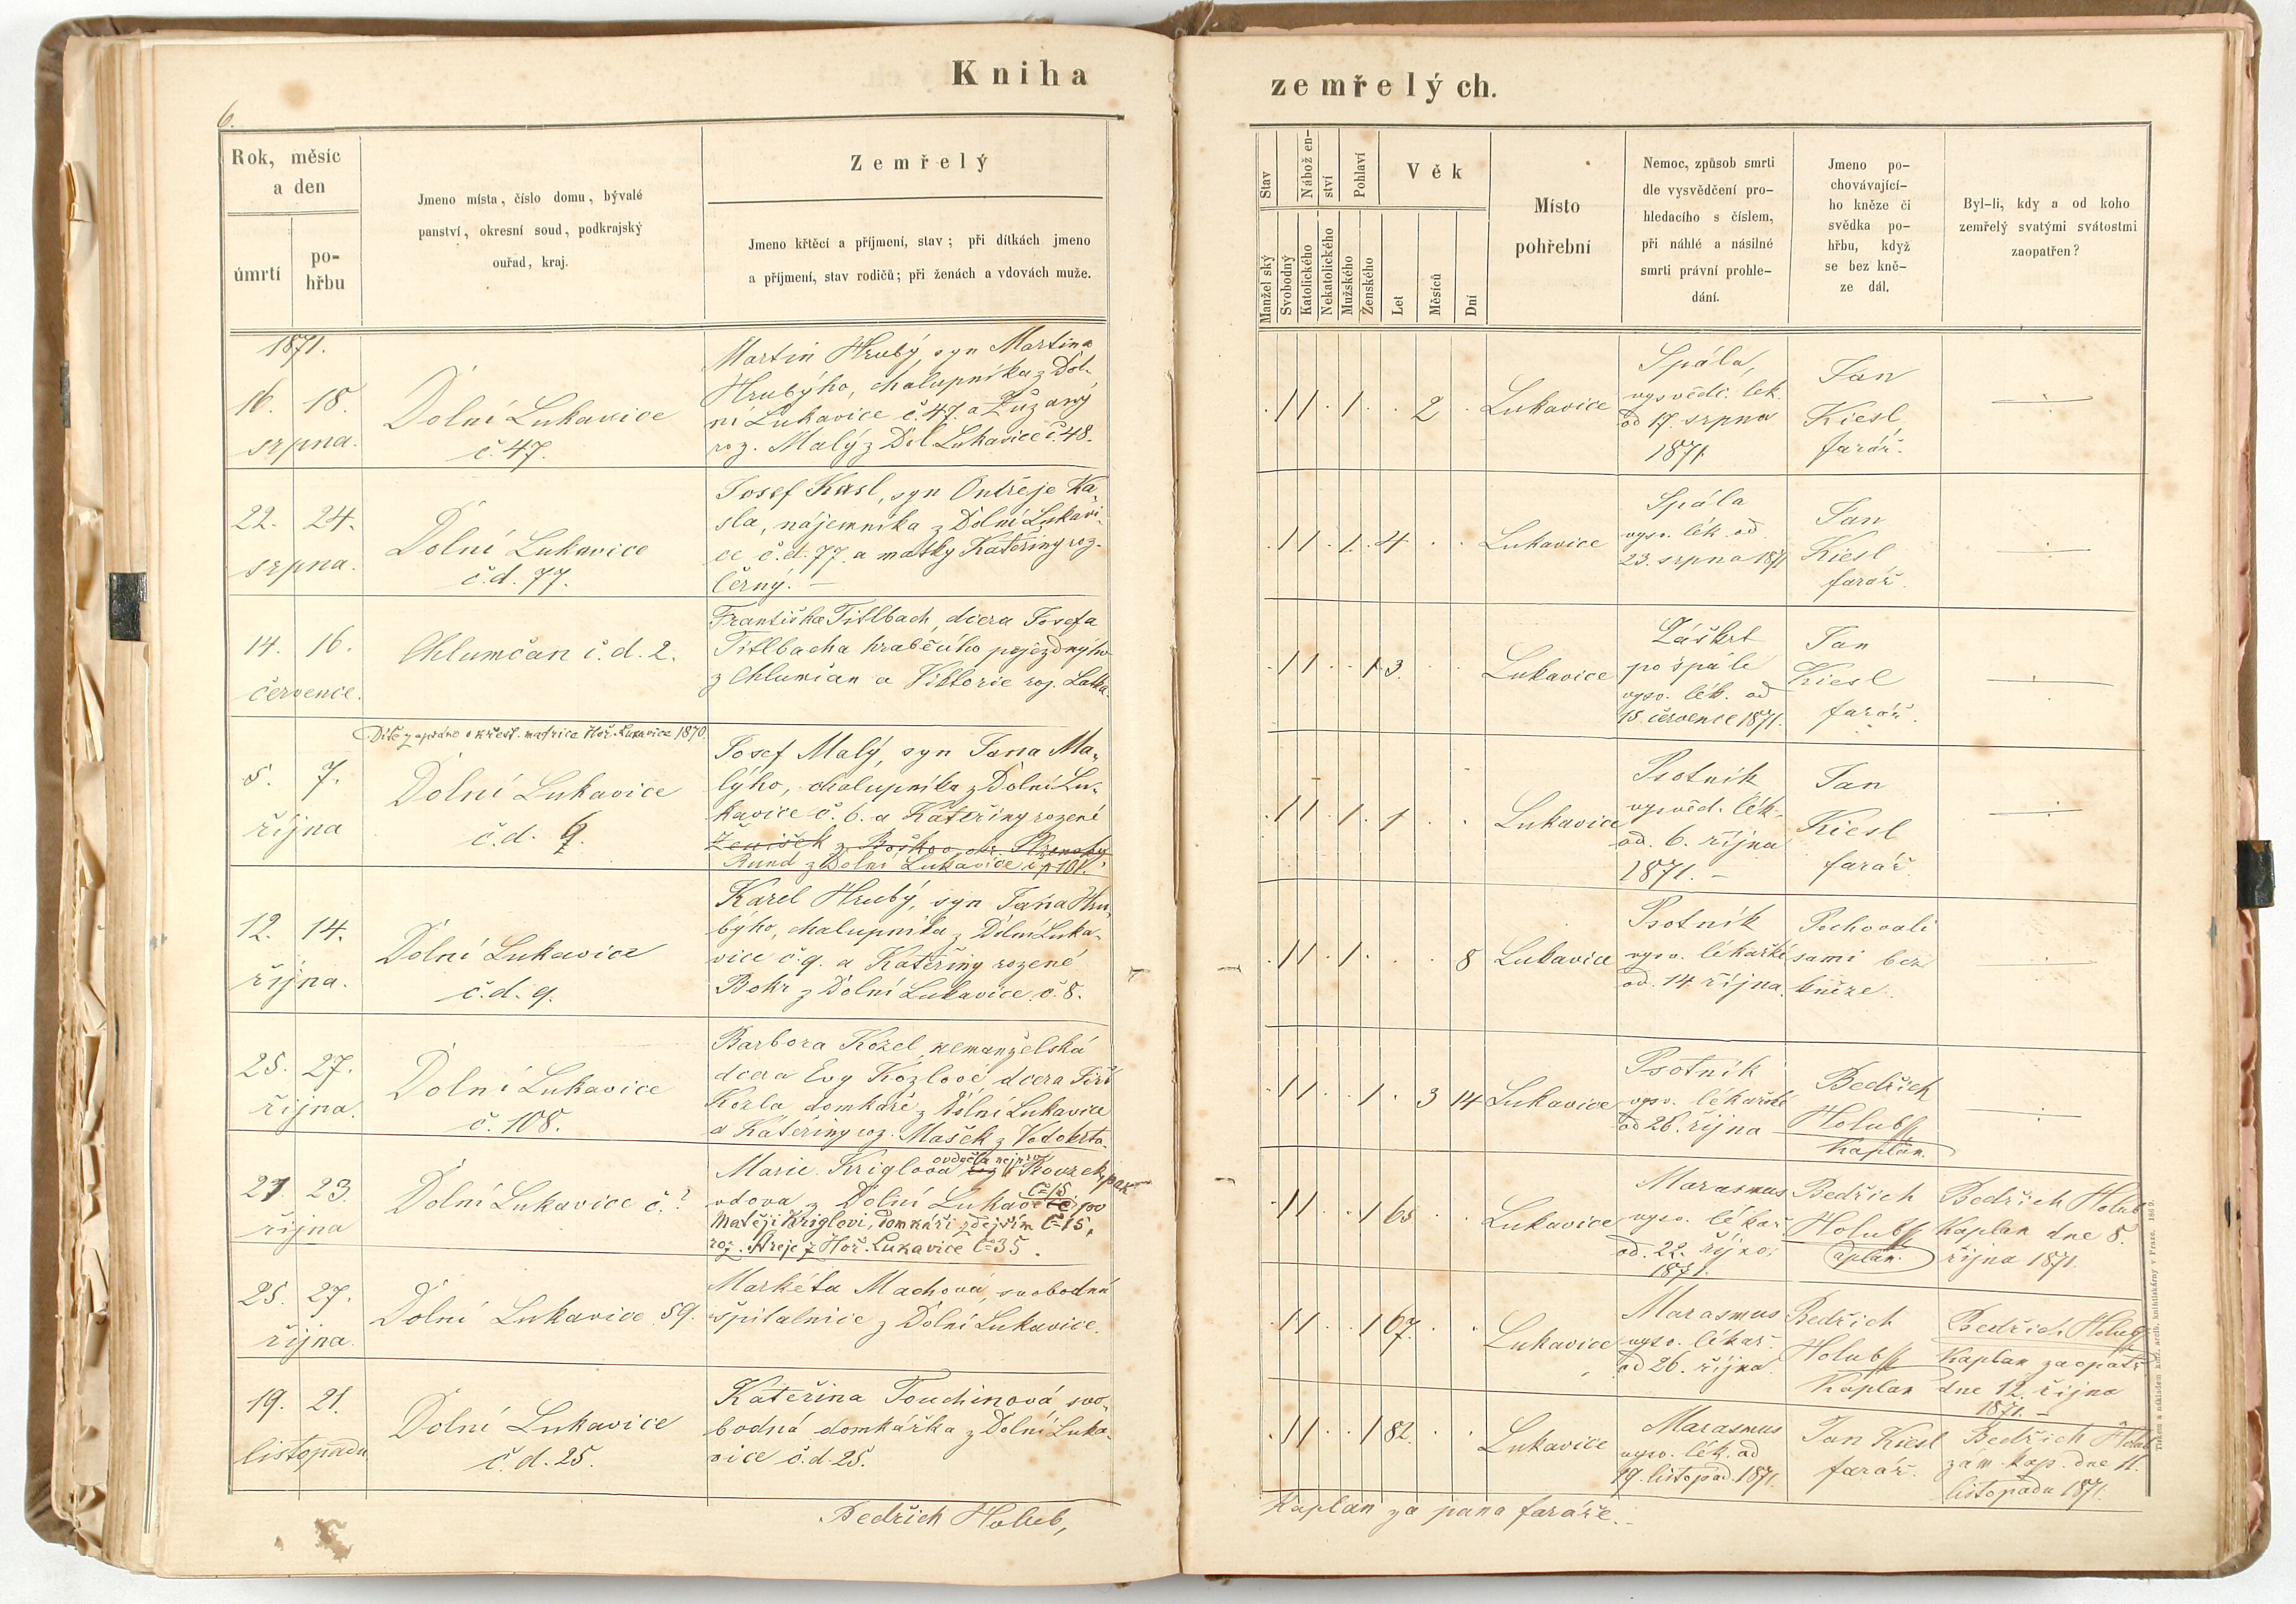 Kniha zemřelých.
6.
Rok, měsíc
a den
úmrtí
po-
hřbu
Jmeno místa, číslo domu, bývalé
panství, okresní soud, podkrajský
ouřad, kraj.
Zemřelý
Jmeno křtěcí a příjmení, stav; při dítkách jmeno
a příjmení, stav rodičů; při ženách a vdovách muže.
Stav
Manželský
Svobodný
Nábožen-
ství
Katolického
Nekatolického
Pohlaví
Mužského
Ženského
Věk
Let
Měsíců
Dní
Místo
pohřební
Nemoc, způsob smrti
dle vysvědčení pro-
hledacího s číslem,
při náhlé a násilné
smrti právní prohle-
dání.
Jmeno po-
chovávající-
ho kněze či
svědka po-
hřbu, když
se bez kně-
ze dál.
Byl-li, kdy a od koho
zemřelý svatými svátostmi
zaopatřen?
1871.
16. 18.
srpna.
Dolní Lukavice
č. 47.
Martin Hrubý, syn Martina
Hrubýho, chalupníka z Dol-
ní Lukavice č. 47. a Zuzany
roz. Malý z Dol. Lukavice č. 48.
1 1 1 2
Lukavice
Spála,
vysvědč. lek.
od 17. srpna
1871
Jan
Kiesl
farář.
22. 24.
srpna.
Dolní Lukavice
č.d. 77.
Josef Kasl, syn Ondřeje Ka-
sla, nájemníka z Dolní Lukavi-
ce č.d. 77. a matky Kateřiny roz.
Černý. –
1 1 1 4
Lukavice
Spála
vysv. lék. od
23. srpna 1871
Jan
Kiesl
farář.
14. 16.
července.
Chlumčan č.d. 2.
Františka Titlbach, dcera Josefa
Titlbacha hraběcího pojezdnýho
z Chlumčan a Viktorie roz. Latka
1 1 1 3.
Lukavice
Záškrt
po spále
vysv. lék. od
15. července 1871.
Jan
Kiesl
farář.
5. 7.
října
Dítě zapsáno v křest. matrice Hoř. Lukavice 1870.
Dolní Lukavice
č.d.
Josef Malý, syn Jana Ma-
lýho, chalupníka z Dolní Lu-
kavice č. 6. a Kateřiny rozené
Ženíšek z
Rund z Dolní Lukavice čp 101.
1 1 1 1
Lukavice
Psotník
vysvěd. lék.
od. 6. října
1871. –
Jan
Kiesl
farář.
12. 14.
října.
Dolní Lukavice
č.d. 9.
Karel Hrubý, syn Jana Hru-
býho, chalupníka z Dolní Luka-
vice č. 9. a Kateřiny rozené
Bokr z Dolní Lukavice č. 8.
1 1 1 8
Lukavice
Psotník
vysv. lékařské
od. 14 října.
Pochovali
sami bez
kněze.
25. 27.
října.
Dolní Lukavice
č. 108.
Barbora Kozel, nemanželská
dcera Evy Kozlové, dcera Jiří
Kozla domkáře z Dolní Lukavice
a Kateřiny roz. Mašek z Vodokrta.
1 1 1 3 14
Lukavice
Psotník
vysv. lékařské
od 26. října
Bedřich
Holub
Kaplan.
21. 23.
října
Dolní Lukavice č. ?
ovdovělá nejprv
Marie Kriglová roz. pak
vdova z Dolní Lukavice po
č=15
Matěji Kriglovi, domkáři zdejším č=15,
roz. z Hoř. Lukavice č=35.
1 1 1 65
Lukavice
Marasmus
vysv. lékař.
od. 22. října
1871.
Bedřich
Holub
kaplan.
Bedřich Holub
Kaplan dne 5.
října 1871.
25. 27.
října.
Dolní Lukavice 59.
Markéta Machová, svobodná
špitalnice z Dolní Lukavice.
1 1 1 67.
Lukavice
Marasmus
vysv. lékař.
od 26. října.
Bedřich
Holub
Kaplan
Bedřich Holub
Kaplan zaopatř.
dne 12. října
1871. –
19. 21.
listopadu
Dolní Lukavice
č.d. 25.
Kateřina Touchinová, svo-
bodná domkářka z Dolní Luka-
vice č.d. 25.
1 1 1 82.
Lukavice
Marasmus
vysv. lék. od
19. listopad. 1871.
Jan Kiesl
farář.
Bedřich Holub
zam. kap. dne 11.
listopadu 1871.
Bedřich Holub,
Kaplan za pana faráře. –